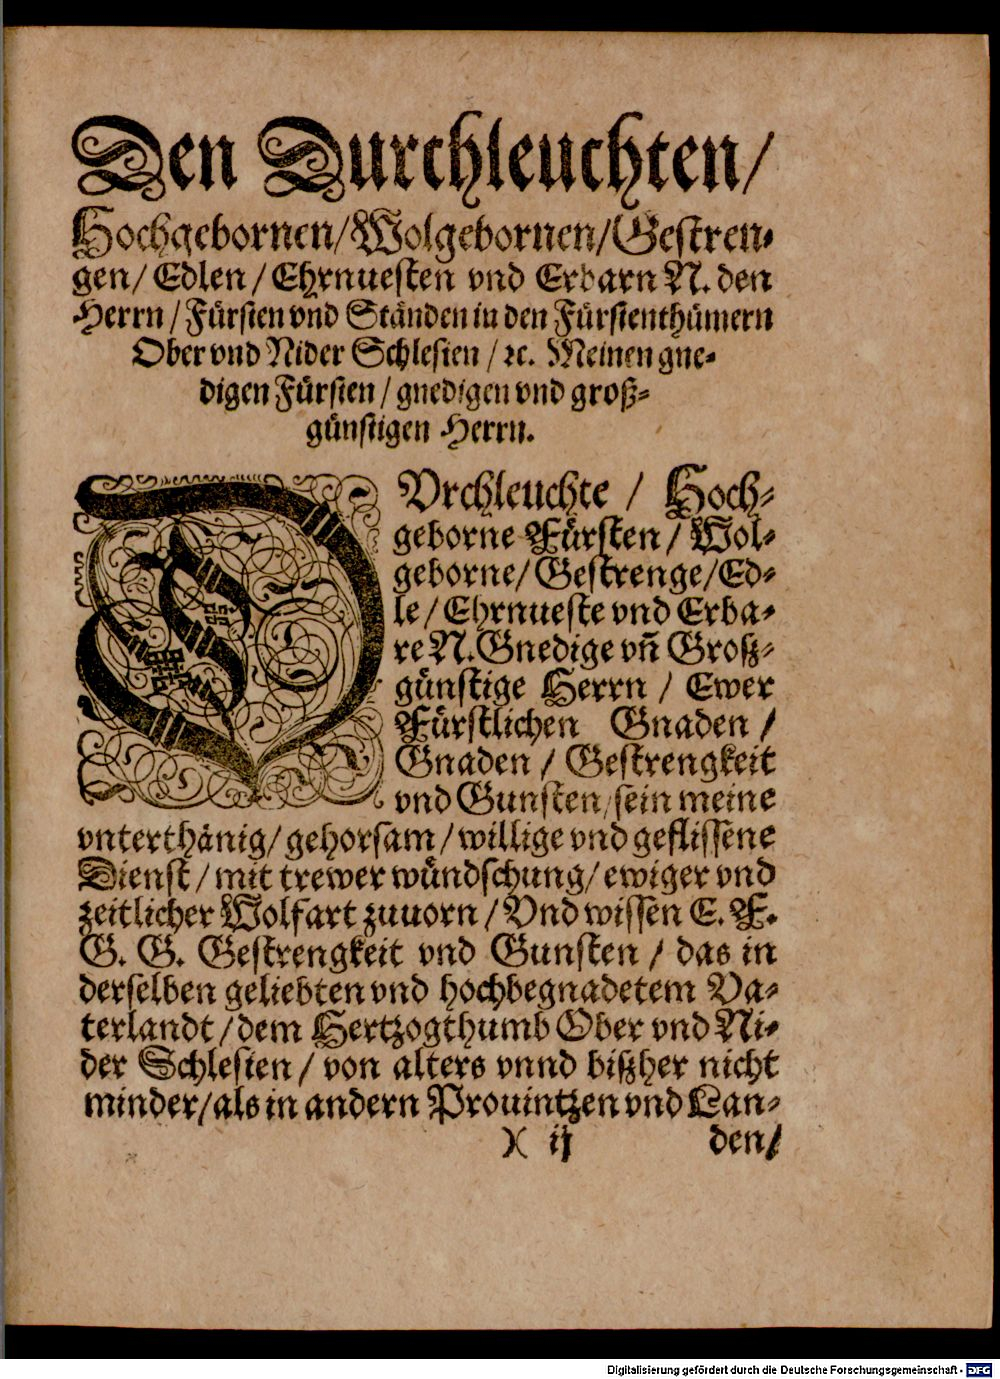 Den Durchleuchten/
Hochgebornen/Wolgebornen/Gestren-
gen/ Edlen/ Ehrnuesten vnd Erbarn N. den
Herrn/ Fürsten vnd Ständen in den Fürstenthümern
Ober vnd Nider Schlesien/ ꝛc. Meinen gne-
digen Fürsten/ gnedigen vnd groß-
günstigen Herrn.
DVrchleuchte / Hoch-
geborne Fürsten/ Wol-
geborne/ Gestrenge/Ed-
le/ Ehrnueste vnd Erba-
re N. Gnedige vn̄ Groß-
günstige Herrn / Ewer
Fürstlichen Gnaden /
Gnaden / Gestrengkeit
vnd Gunsten/ sein meine
vnterthänig/ gehorsam/ willige vnd geflissene
Dienst/ mit trewer wündschung/ ewiger vnd
zeitlicher Wolfart zuuorn/ Vnd wissen E. F.
G. G. Gestrengkeit vnd Gunsten / das in
derselben geliebten vnd hochbegnadetem Va-
terlandt/ dem Hertzogthumb Ober vnd Ni-
der Schlesien/ von alters vnnd bißher nicht
minder/als in andern Prouintzen vnd Lan-
)( ij den/
Digitalisierung gefördert durch die Deutsche Forschungsgemeinschaft - DFG